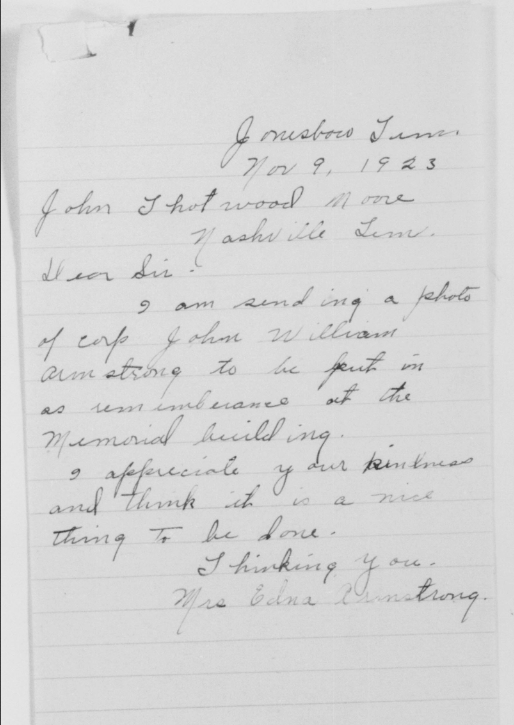 Jonesboro Tenn.
Nov 9, 1923
John Thotwood Moore
Nashville Tenn.
Dear Sir.
I am sending a photo
of corp John William
Armstrong to be put in
as rememberance at the
Memorial building.
I appreciate your kindness
and think it is a nice
thing to be done.
Thinking you.
Mrs Edna Armstrong.